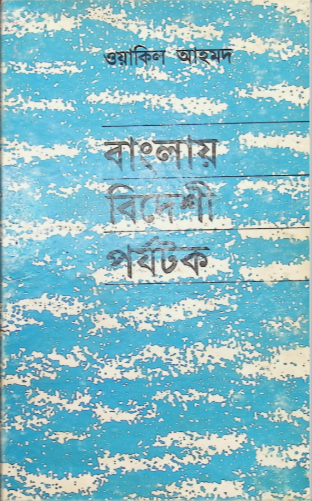 ওয়াকিল আহমদ
বাংলায়
বিদেশী
পর্যটক